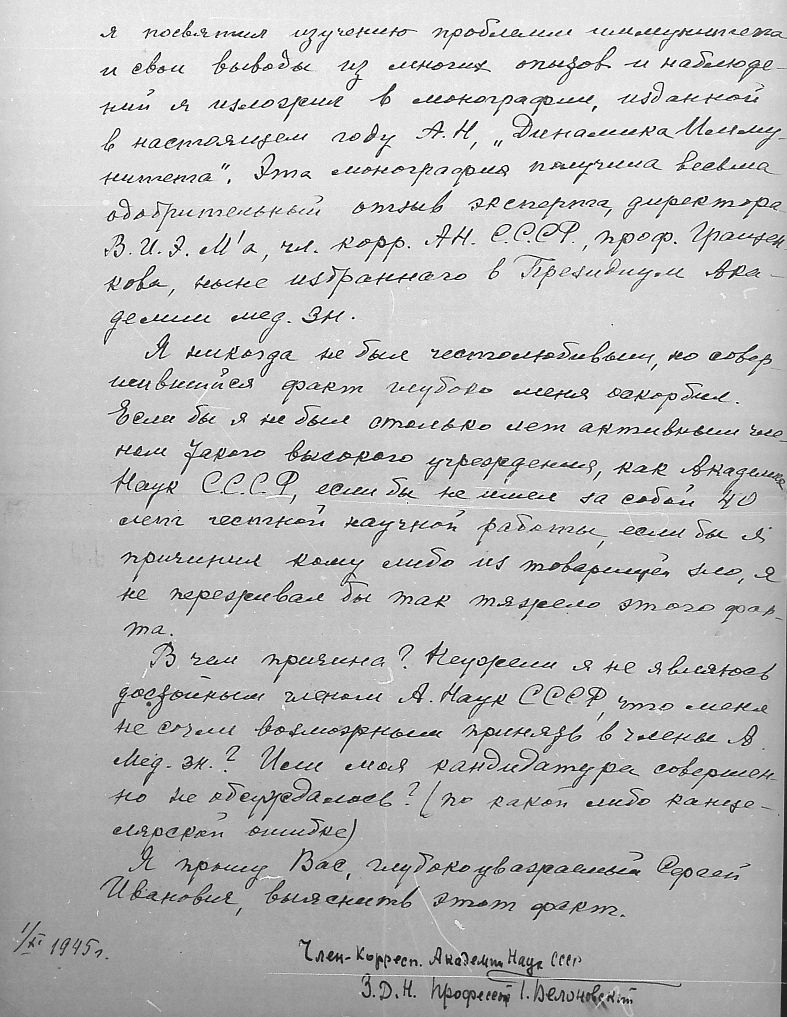 я посвятил изучению проблемы иммунитета
и свои выводы из многих опытов и наблюде-
ний я изложил в монографии, изданной
в настоящем году А.Н, „Динамика Имму-
нитета". Эта монография получила весьма
одобрительный отзыв эксперта, директора
В.И.Э.М'а, чл. корр. АН. С.С.С.Р., проф. Гращен-
кова, ныне избранного в Президиум Ака-
демии мед. зн.
Я никогда не был честолюбивым, но совер-
шившийся факт глубоко меня оскорбил.
Если бы я не был столько лет активным чле-
ном такого высокого учреждения, как Академия
Наук С.С.С.Р, если бы не имел за собой 40
лет честной научной работы, если бы я
причинил кому либо из товарищей зло, я
не переживал бы так тяжело этого фак-
та.
В чем причина? Неужели я не являюсь
достойным членом А. Наук СССР, что меня
не сочли возможным принять в члены А.
Мед. зн.? Или моя кандидатура совершен-
но не обсуждалось? (по какой либо канце-
лярской ошибке)
Я прошу Вас, глубокоуважаемый Сергей
Иванович, выяснить этот факт.
1/XI 1945г.
Член-Корресп. Академии Наук СССР
З.Д.Н. Професст Г. Белоновский